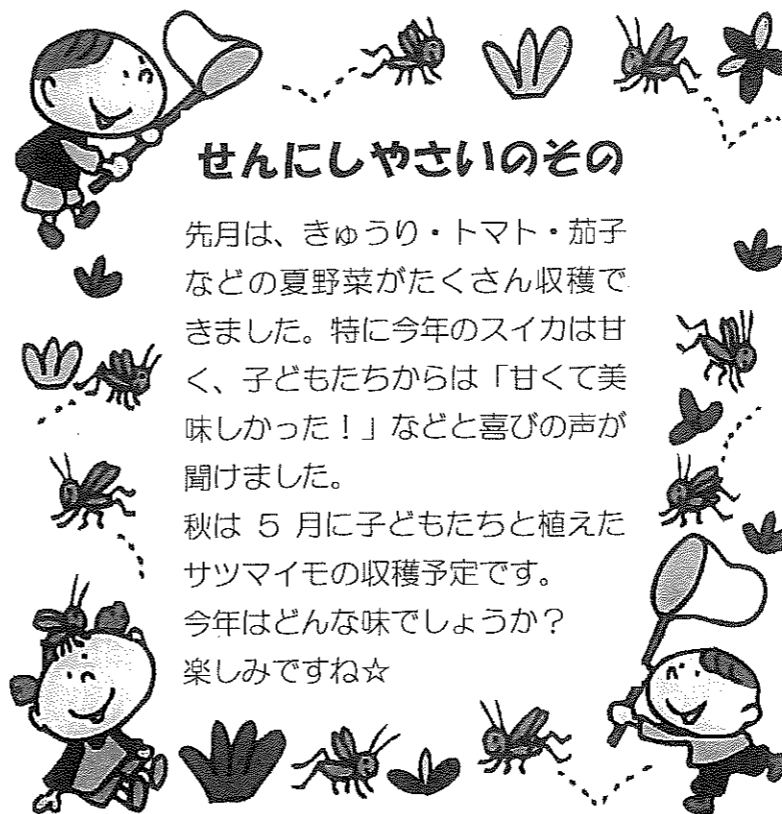 せんにしやさいのその
先月は、きゅうり・トマト・茄子
などの夏野菜がたくさん収穫で
きました。特に今年のスイカは甘
く、子どもたちからは「甘くて美
味しかった！」などと喜びの声が
聞けました。
秋は 5 月に子どもたちと植えた
サツマイモの収穫予定です。
今年はどんな味でしょうか？
楽しみですね☆